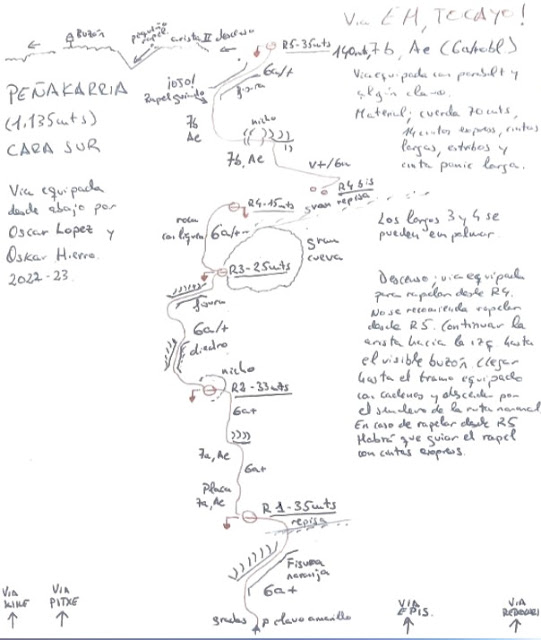 Via EH, TOCAYO!
140mts, 7b, Ae (6a/obl)
Via equipada con parabolt y
algún clavo.
Material; cuerda 70mts,
14 cintas expres, cintas
largas, estribos y
cinta panic larga.
Buzón
pequeño rapel
arista II descenso
PEÑAKARRIA
(1.135mts)
CARA SUR
Via equipada
desde abajo por
Oscar Lopez y
Oskar Hierro.
2022-23.
R5-35mts
6a/+
fisura
¡OJO!
Rapel guiado
7b
Ae
nicho
7b, Ae
V+/6a
R4 bis
gran repisa
R4-15mts
roca
con liquen
6a/+
gran
cueva
R3-25mts
fisura
6a/+
diedro
nicho
R2-33mts
6a+
7a, Ae
6a+
Placa
7a, Ae
R1-35mts
repisa
Fisura
naranja
6a+
gradas
clavo amarillo
Los largos 3 y 4 se
pueden empalmar.
Descenso; via equipada
para rapelar desde R4.
No se recomienda rapelar
desde R5. Continuar la
arista hacia la izq. hasta
el visible buzón. Llegar
hasta el tramo equipado
con cadenas y descender por
el sendero de la ruta normal
En caso de rapelar desde R5
Habrá que guiar el rapel
con cintas express.
VIA
KIKE
VIA
PITXE
VIA
EPIS.
VIA